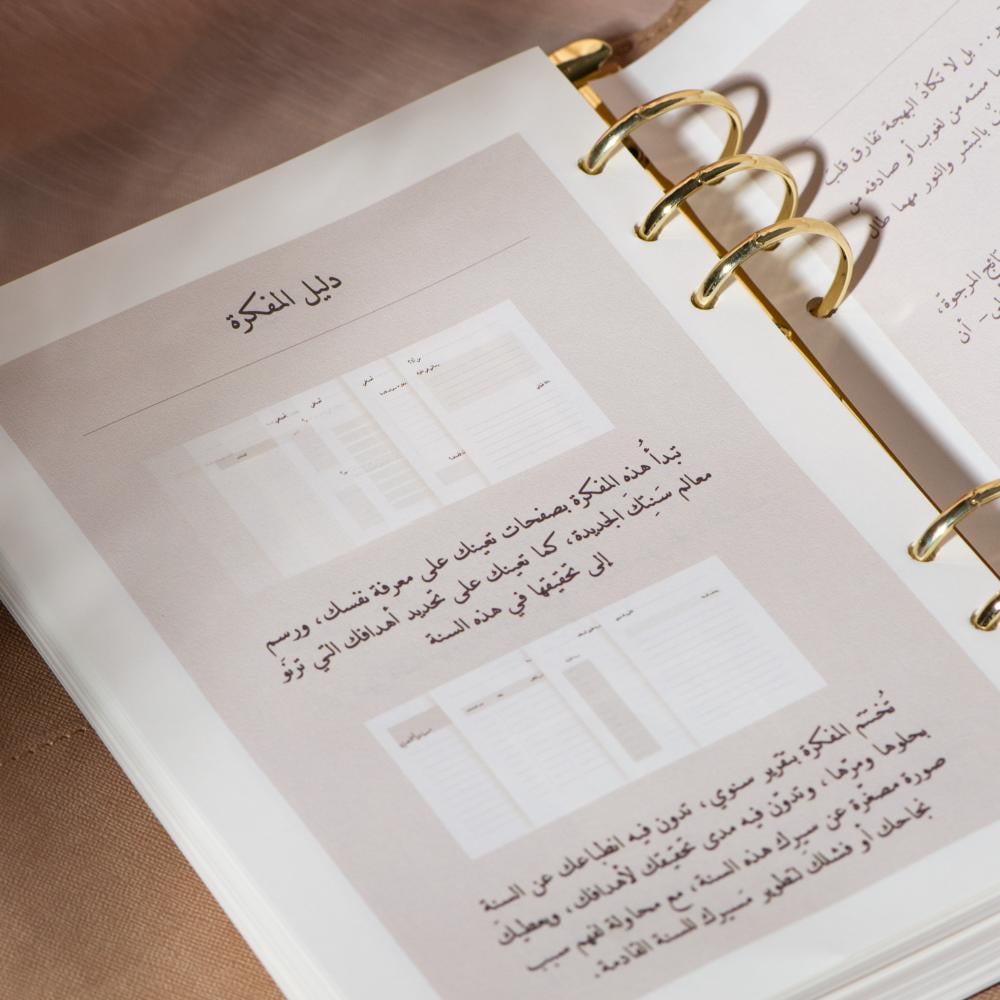 دليل المفكرة
تبدأ هذه المفكرة بصفحات تعينك على معرفة نفسك، ورسم
معالم سَنَتِكَ الجديدة، كما تعينك على تحديد أهدافك التي ترنُو
إلى تحقيقها في هذه السنة
تُختتم المفكرة بتقرير سنوي، تدون فيه انطباعك عن السنة
بحلوها ومرّها، وتدوّن فيه مدى تحقيقك لأهدافك، ويعطيك
صورة مصغّرة عن سيرك هذه السنة، مع محاولة لفهم سبب
نجاحك أو فشلك لتطوير مسيرك للسنة القادمة.
بل لا تكادُ البهجة تفارق قلب
مسّه من لغوب أو صادفه من
بالبشر والنور مهما طال
المرجوة،
أن